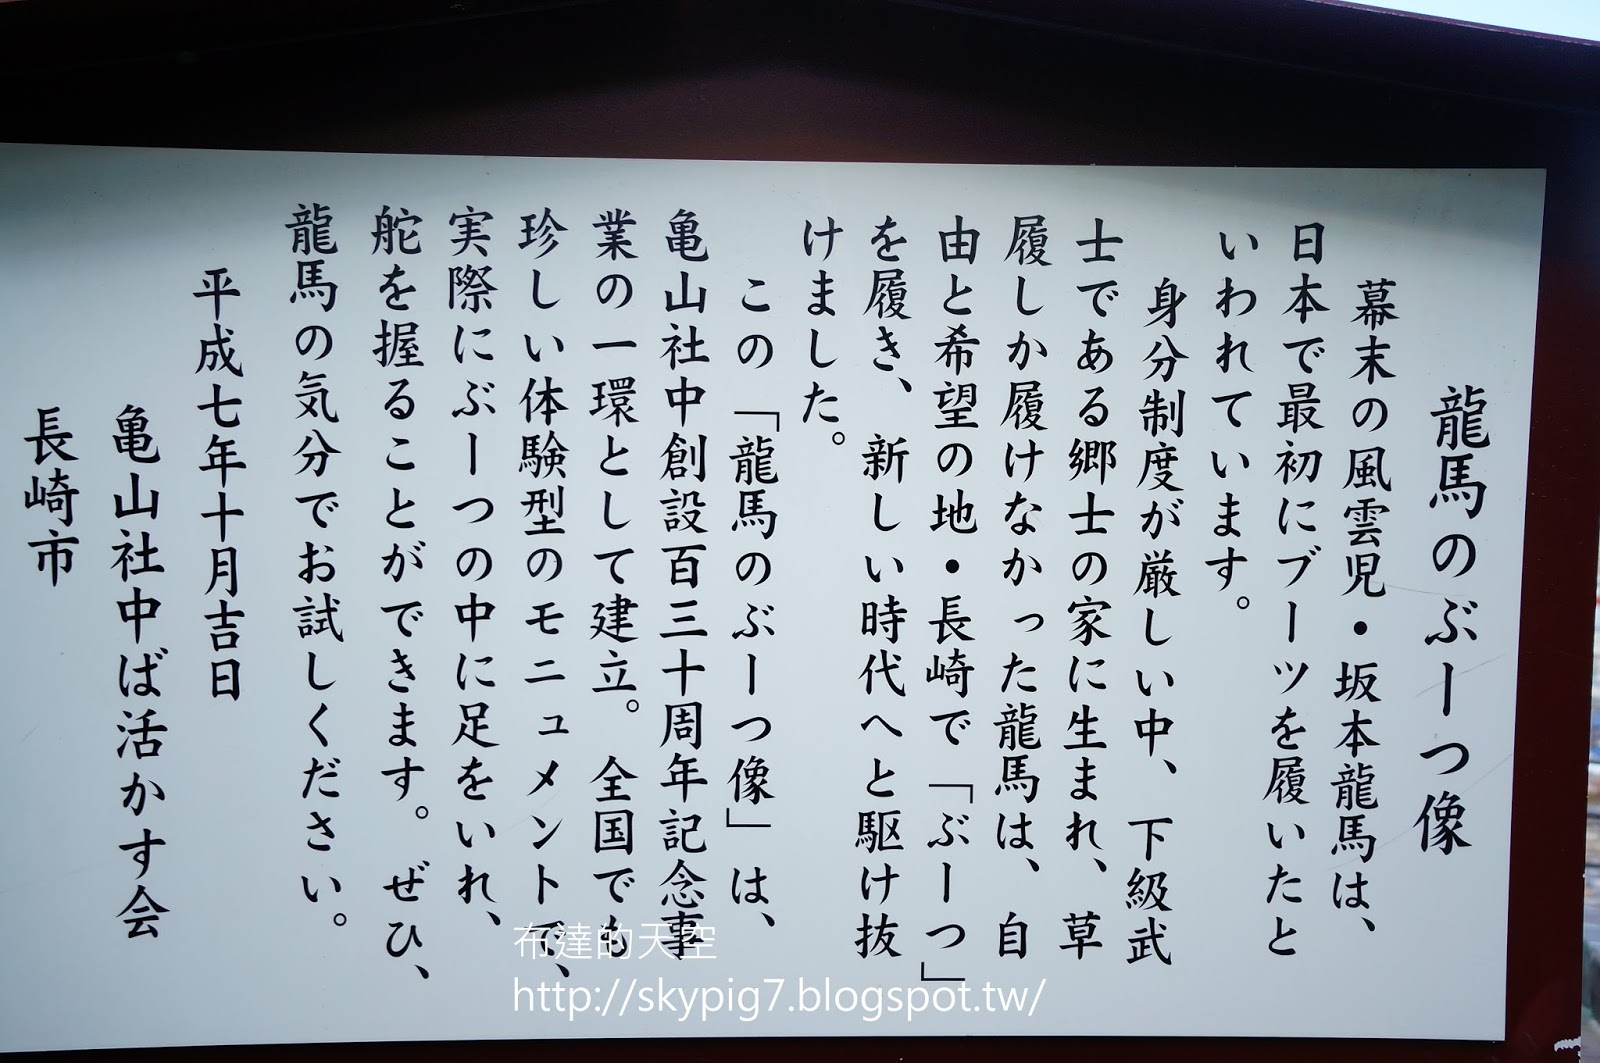 龍馬のぶーつ像
幕末の風雲児・坂本龍馬は、
日本で最初にブーツを履いたと
いわれています。
身分制度が厳しい中、下級武
士である郷士の家に生まれ、草
履しか履けなかった龍馬は、自
由と希望の地・長崎で「ぶーつ」
を履き、新しい時代へと駆け抜
けました。
この「龍馬のぶーつ像」は、
亀山社中創設百三十周年記念事
業の一環として建立。全国でも
珍しい体験型のモニュメントで、
実際にぶーつの中に足をいれ、
舵を握ることができます。ぜひ、
龍馬の気分でお試しください。
平成七年十月吉日
亀山社中ば活かす会
長崎市
布達的天空
http://skypig7.blogspot.tw/